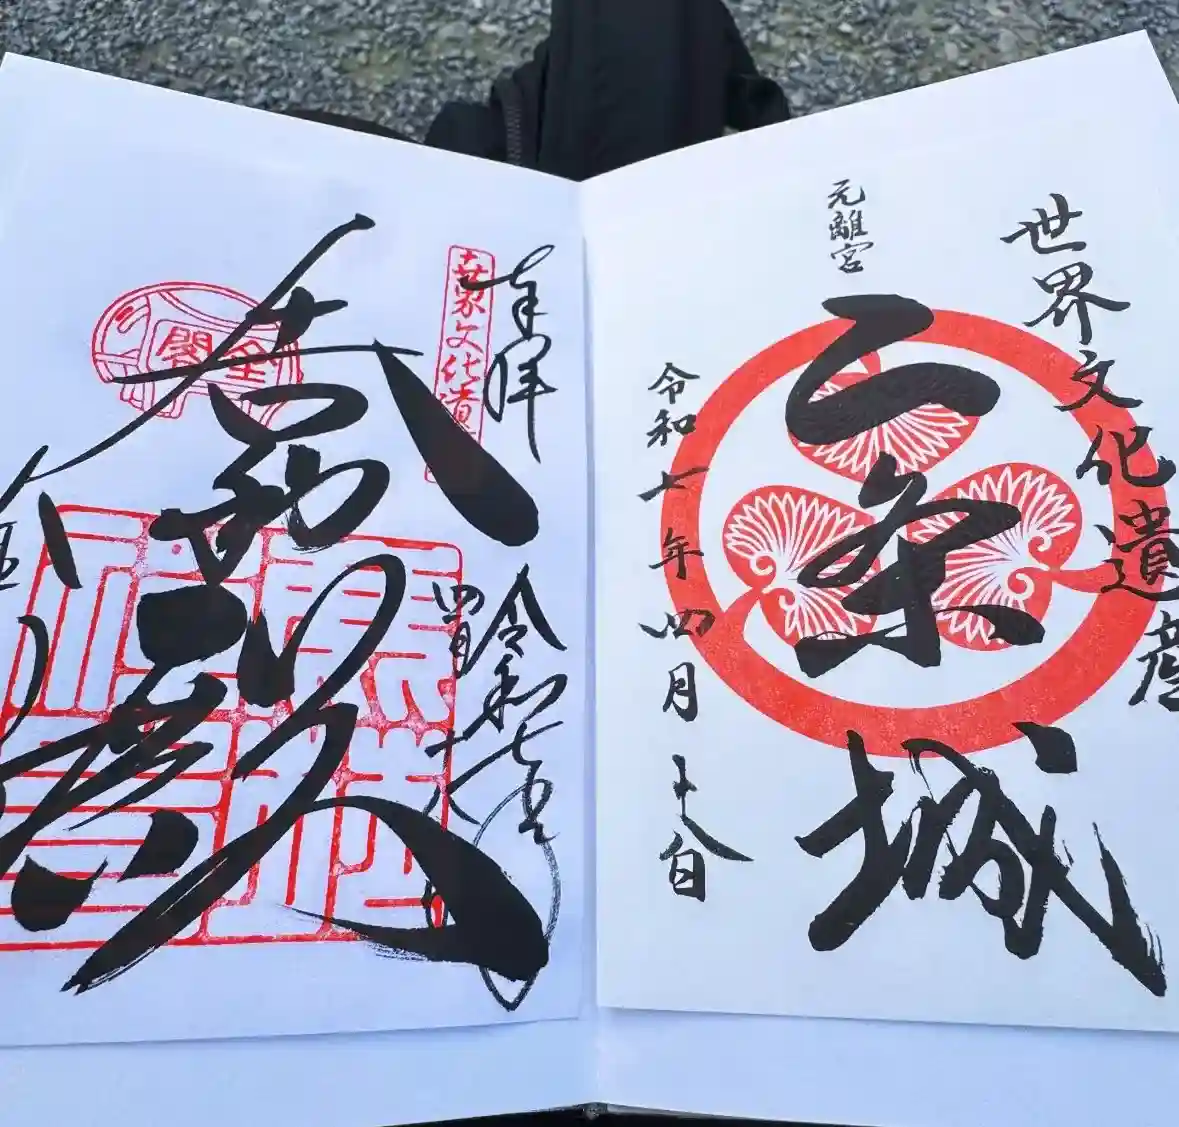 世界文化遺産
元離宮
二条城
令和七年四月十八日
奉拝
界文化遺
令和七年
四月
舎利殿
金閣